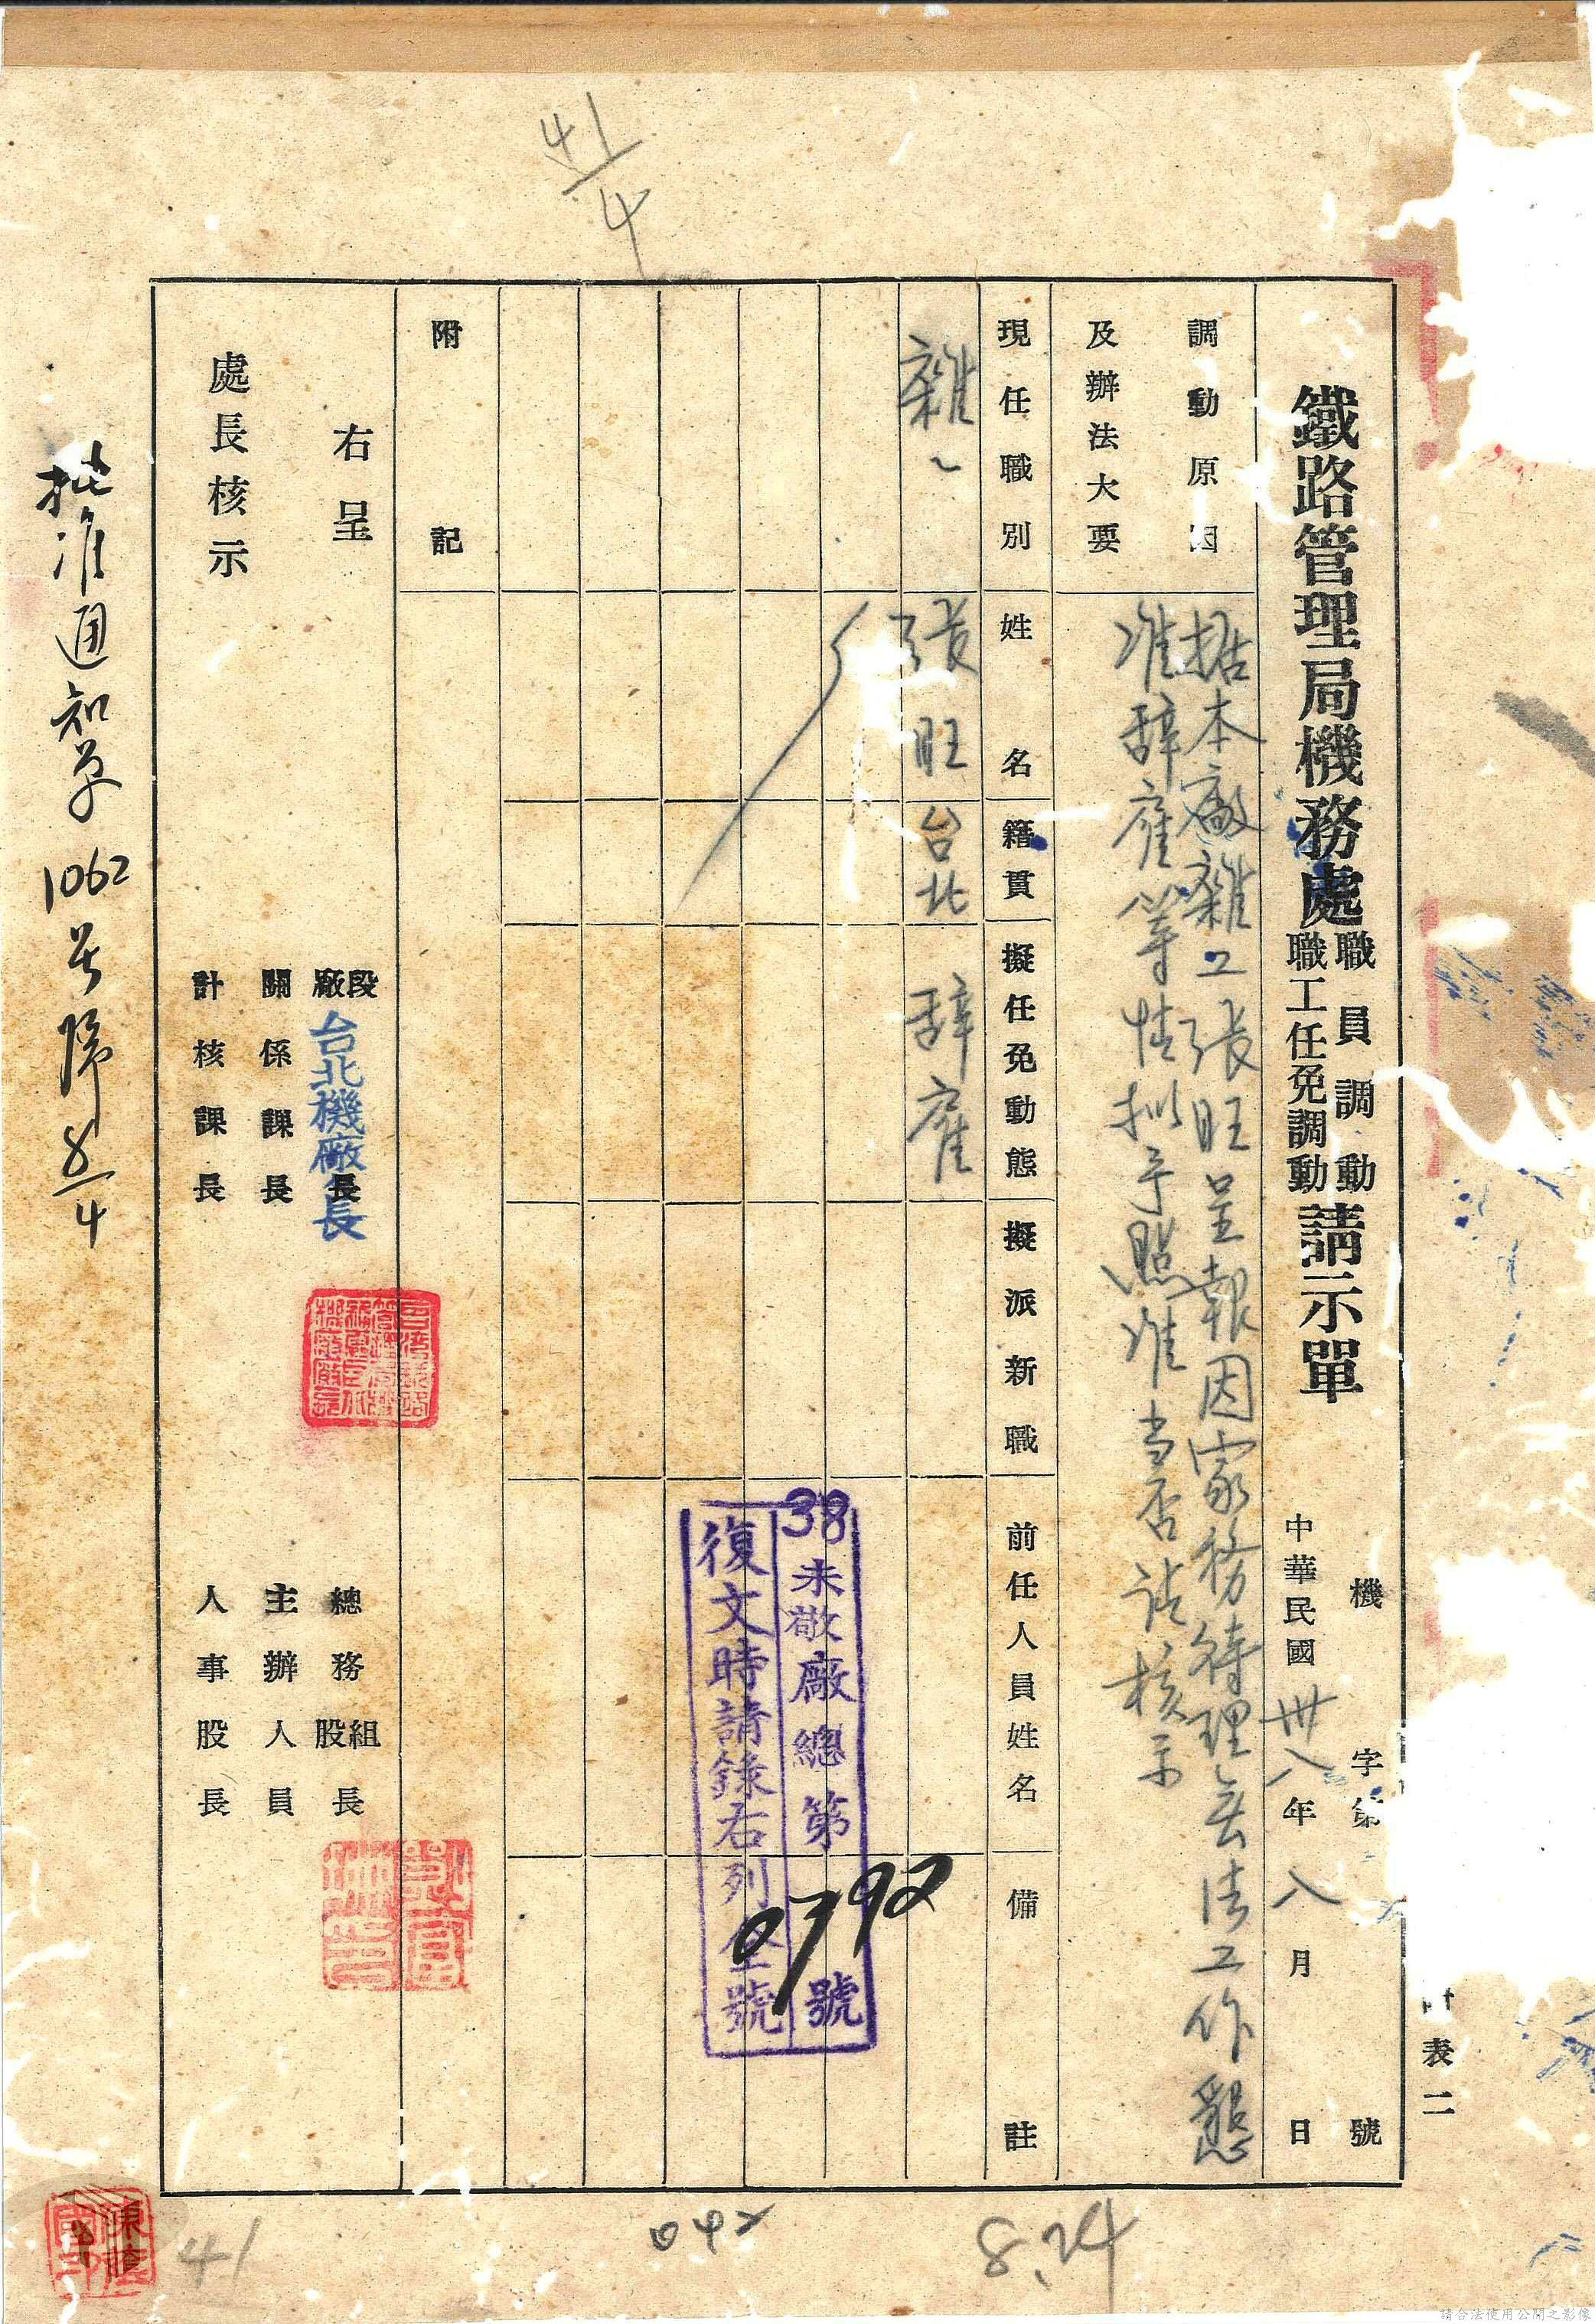 附表二
鐵路管理局機務處
職員調動
職工任免調動
請示單
機 字第 號
中華民國卅八年八月 日
調動原因
及辦法大要
据本廠雜工張旺呈報因家務待理無法工作懇
准辞雇等情拟予照准当否請核示
現任職別
姓名
籍貫
擬任免動態
擬派新職
前任人員姓名
備註
雜工
張旺
台北
辞雇
38
來敝廠總第0792號
復文時請錄右列全號
附記
右呈
處長核示
段
廠
長
台北機廠長
關係課長
計核課長
總務組
股
長
主辦人員
人事股長
批准通知單1062号
8/4
41/4
41
042
8.24
請合法使用公開之影像